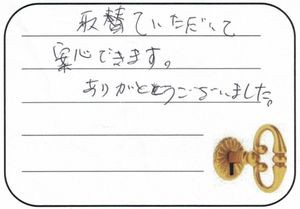 取替ていただいて
安心できます。
ありがとうございました。